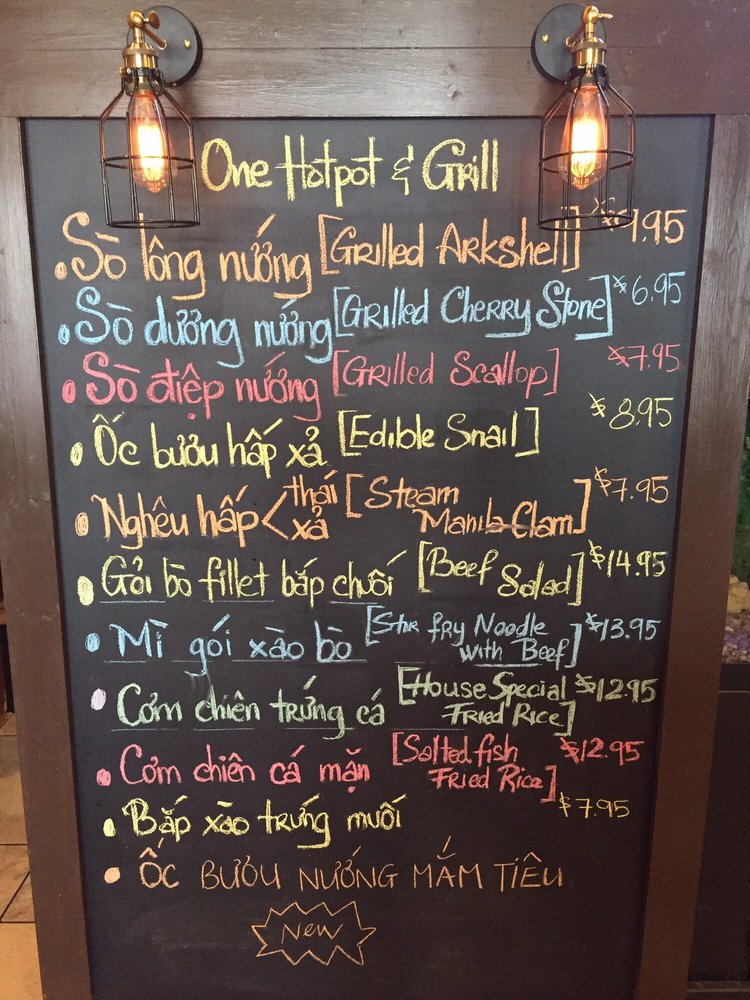 One Hotpot & Grill
• Sò lông nướng [Grilled Arkshell] $9.95
• Sò dương nướng [Grilled Cherry Stone] $6.95
• Sò điệp nướng [Grilled Scallop] $7.95
• Ốc bươu hấp xả [Edible Snail] $8.95
• Nghêu hấp < thái [Steam $7.95
xả Manila Clam]
• Gỏi bò fillet bắp chuối [Beef Salad] $14.95
• Mì gói xào bò [Stir fry Noodle $13.95
with Beef]
• Cơm chiên trứng cá [House Special $12.95
Fried Rice]
• Cơm chiên cá mặn [Salted fish $12.95
Fried Rice]
• Bắp xào trứng muối $7.95
• ỐC BƯƠU NƯỚNG MẮM TIÊU
New